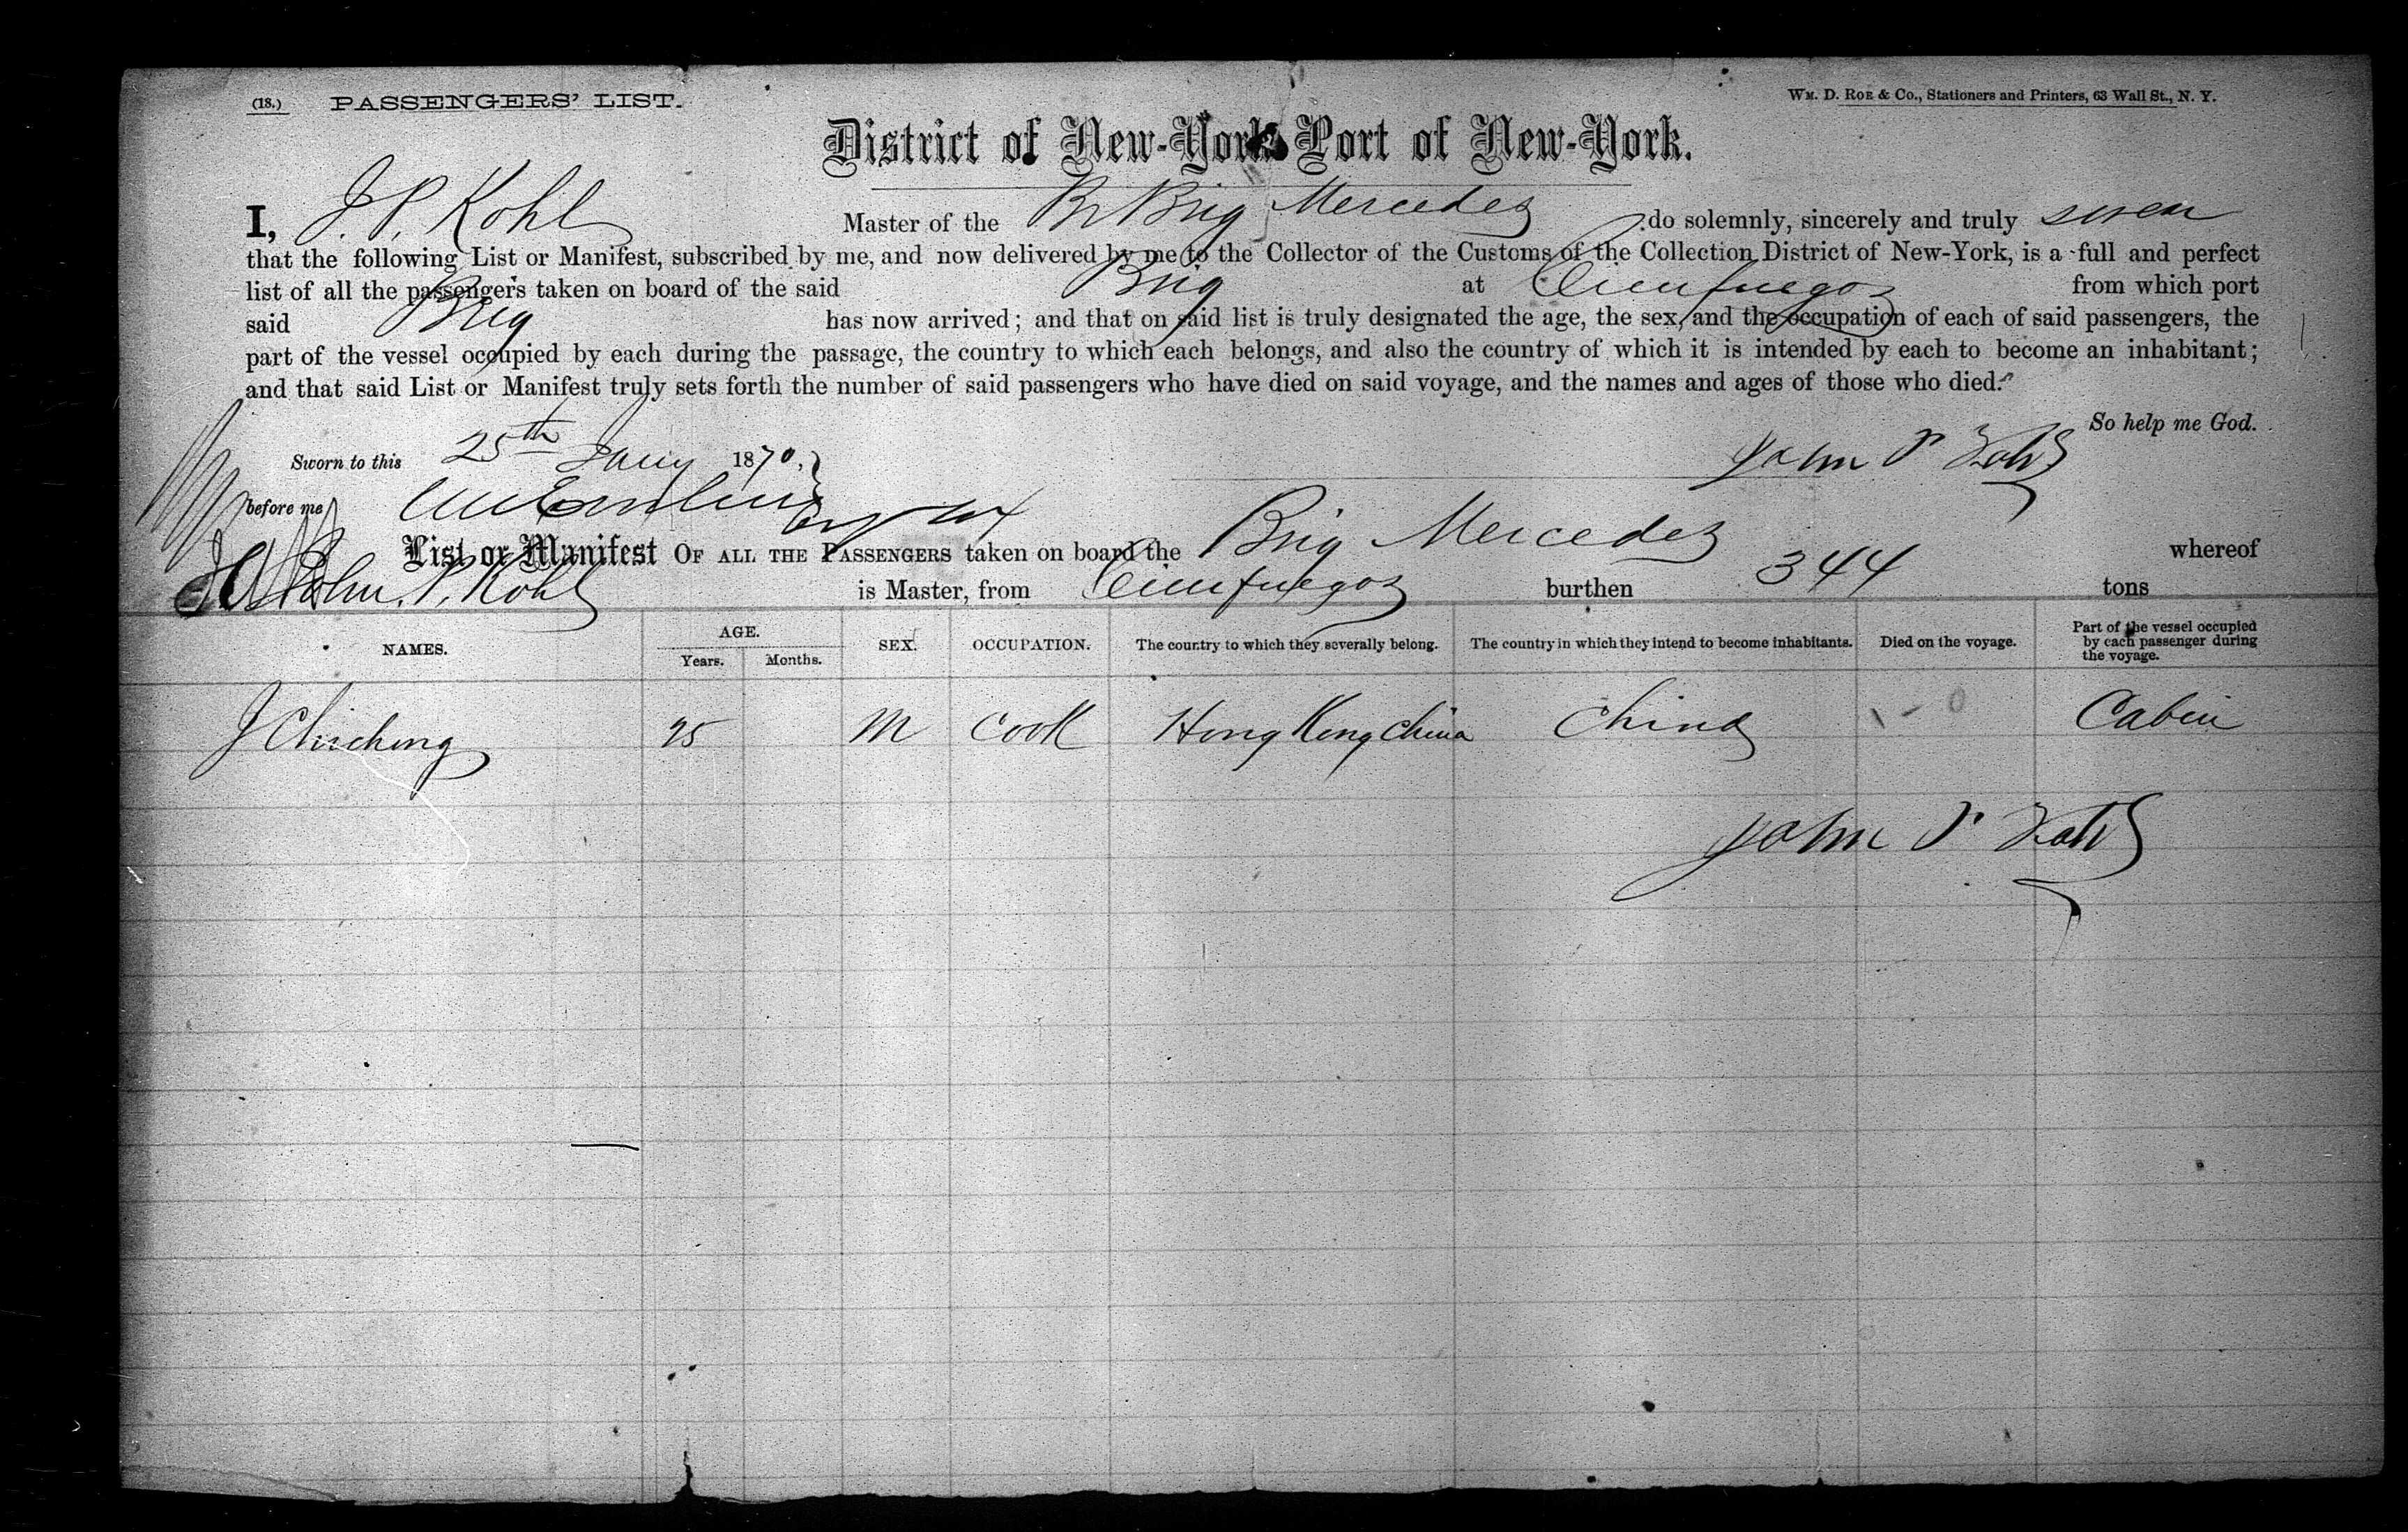 (18.) PASSENGERS' LIST.
WM. D. ROE & CO., Stationers and Printers, 63 Wall St., N. Y.
District of New-York Port of New-York.
I, J. P. Kohl Master of the Br Brig Mercedes do solemnly, sincerely and truly swear
that the following List or Manifest, subscribed by me, and now delivered by me to the Collector of the Customs of the Collection District of New-York, is a full and perfect
list of all the passengers taken on board of the said Brig at Cienfuegos from which port
said Brig has now arrived; and that on said list is truly designated the age, the sex, and the occupation of each of said passengers, the
part of the vessel occupied by each during the passage, the country to which each belongs, and also the country of which it is intended by each to become an inhabitant;
and that said List or Manifest truly sets forth the number of said passengers who have died on said voyage, and the names and ages of those who died.
So help me God.
Sworn to this 25th Jany 1870, John P Kohl
before me
List or Manifest OF ALL THE PASSENGERS taken on board the Brig Mercedes whereof
John. P. Kohl is Master, from Cienfuegos burthen 344 tons
NAMES. AGE. Years. Months. SEX. OCCUPATION. The country to which they severally belong. The country in which they intend to become inhabitants. Died on the voyage. Part of the vessel occupied by each passenger during the voyage.
25 M Cook Hong Kong China China Cabin
John P Kohl